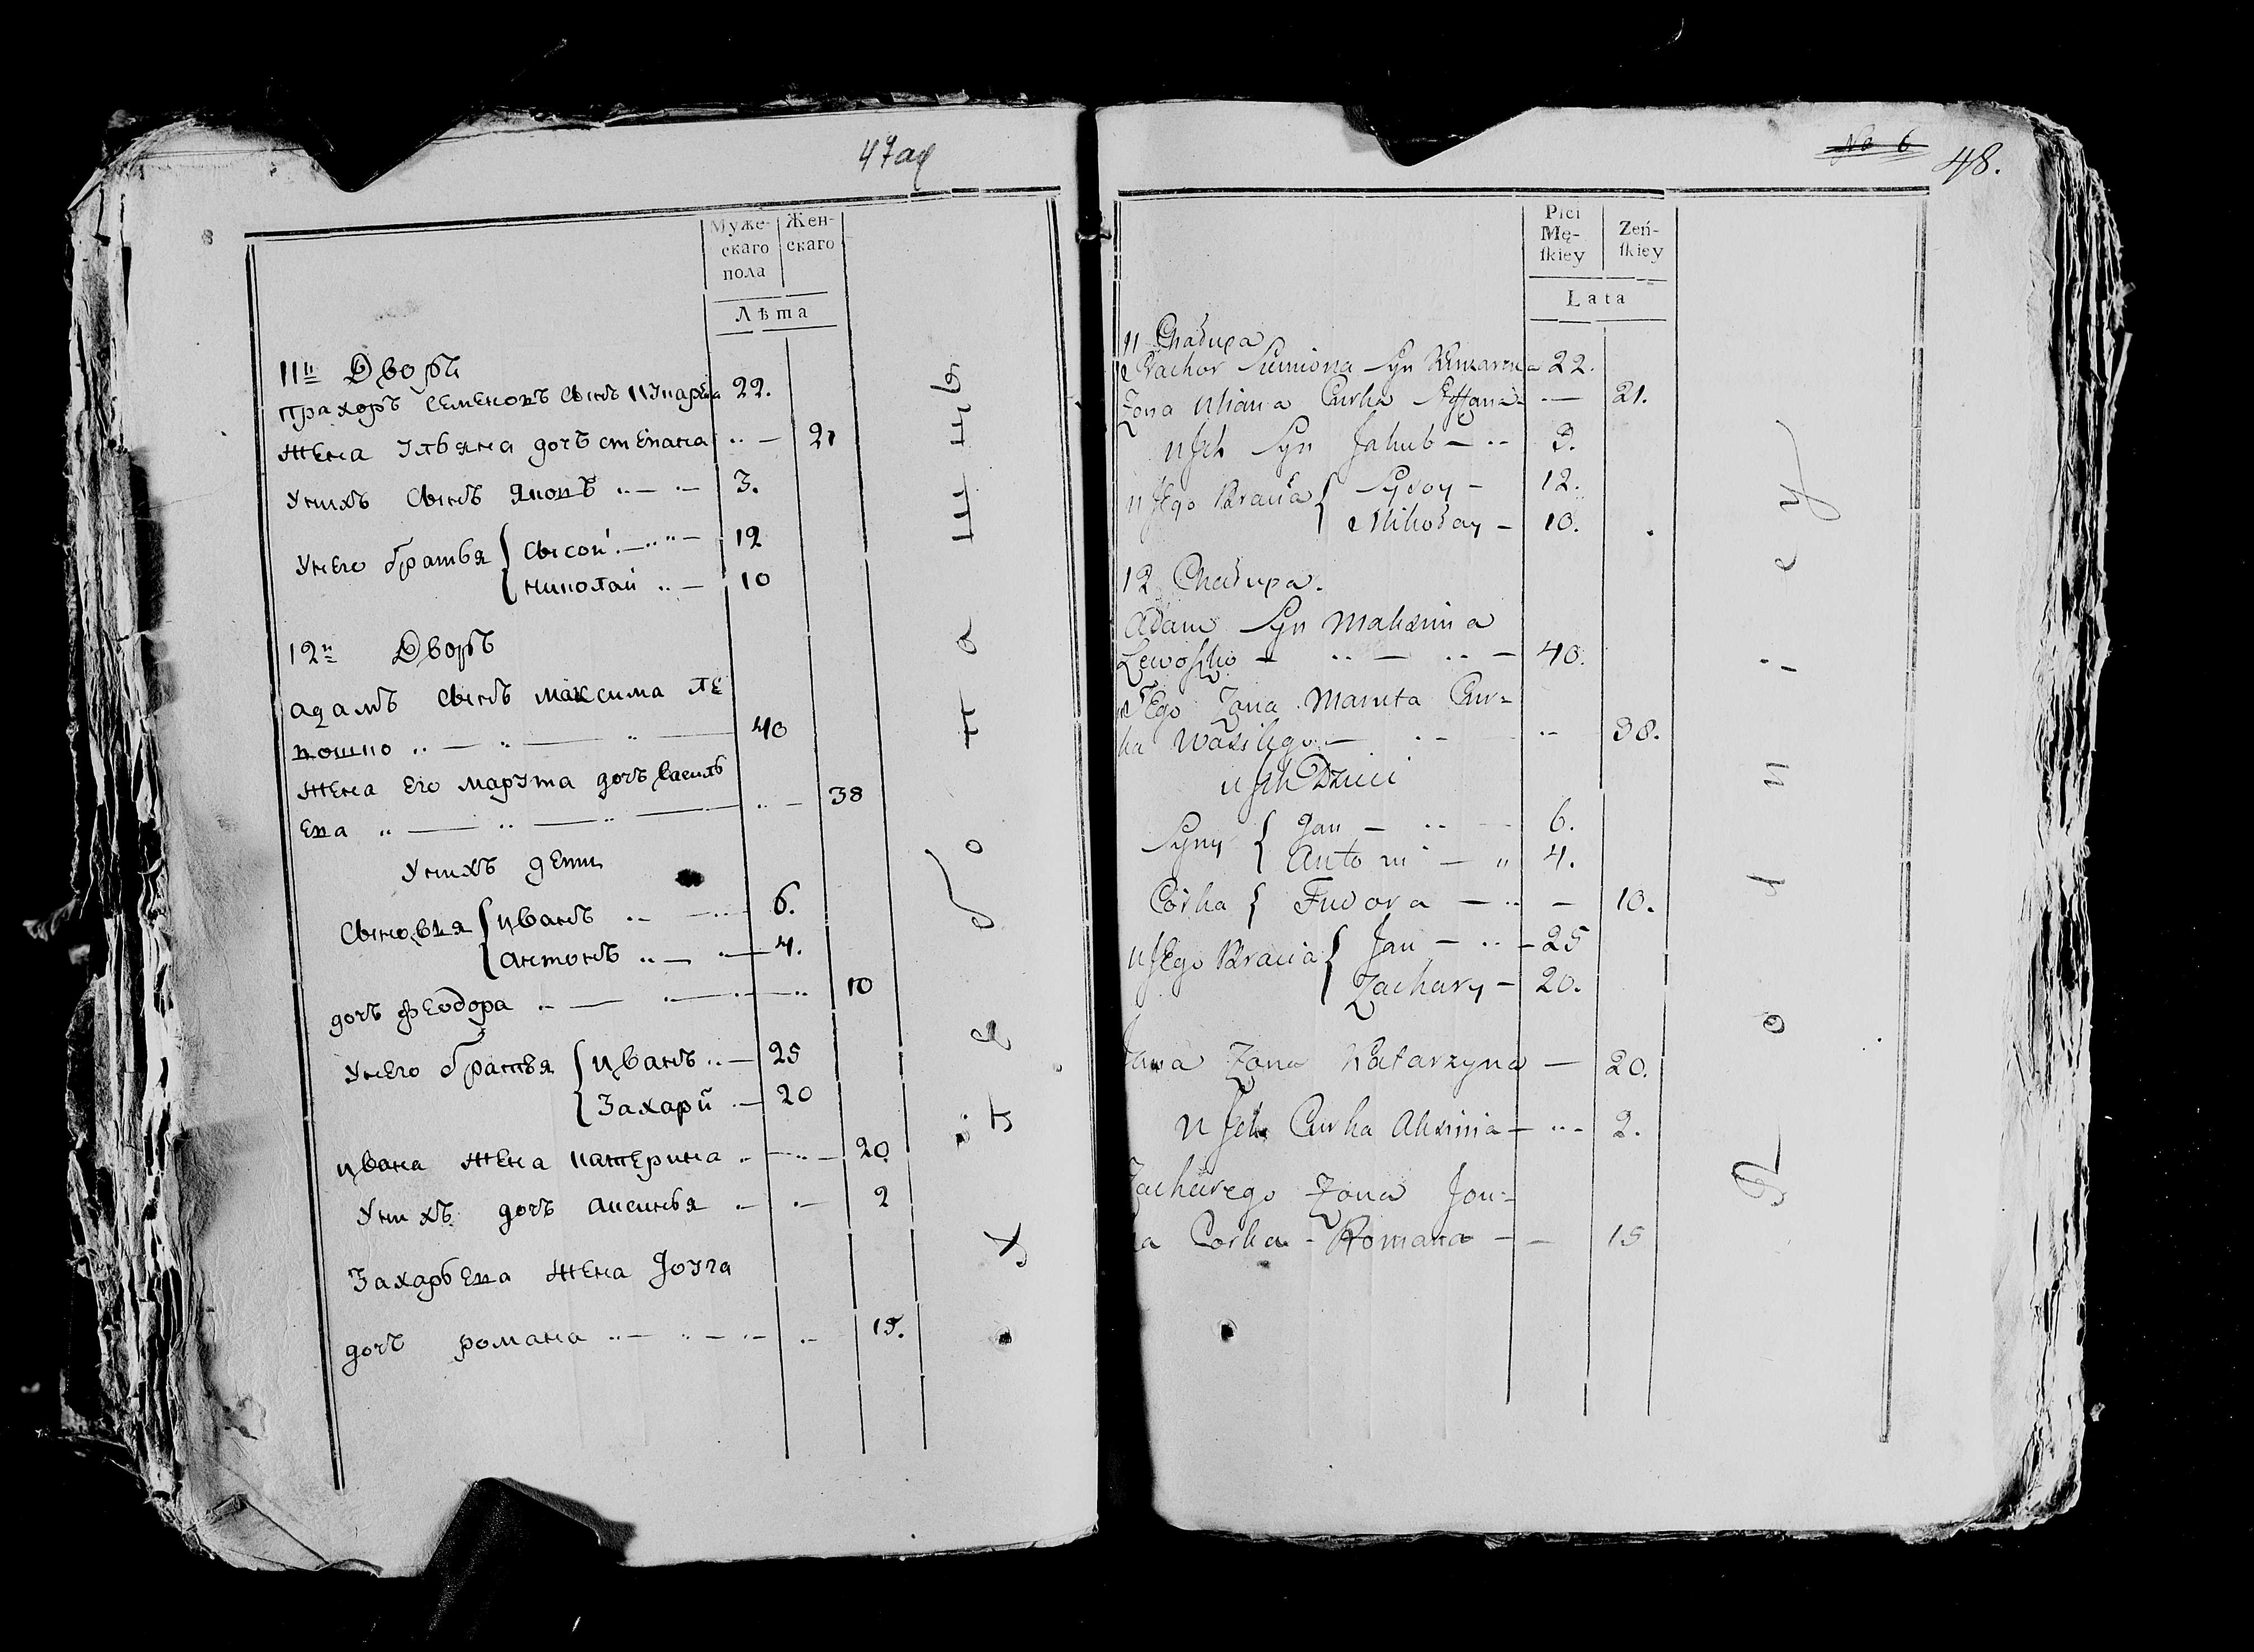 47об
Муже-
скаго
пола
Жен-
скаго
Лѣта
11й Дворъ
Прахоръ Семеновъ Сынъ 22.
Жена Ульяна дочъ степана ..— 21
Унихъ Сынъ Яковъ ..— .— 3.
Унего братья { Сысой .—..— 12
{ николай ..— 10
12й Дворъ
адамъ Сынъ максима ле
вошко ..— .. — .. — 40
Жена Его марута дочъ василь
Ева .. — .. — .. — .. — 38
Унихъ дети
Сыновья { иванъ .. — ..— 6.
{ антонъ ..— .— 4.
дочъ феодора .. — ..—.. 10
Унего братья { иванъ ..— 25
{ Захарй .— 20
ивана Жена катерина .. —..— 20.
Унихъ дочъ аксинья ..— .— 2
Захарьева Жена
дочъ романа ..— ..— ..— .. 15.
No 6
48.
Płci
Mę-
ſkiey
Żeń-
ſkiey
Lata
11 Chałupa
Prachor Siemiona Syn 22.
Żona Uliana Curka Steffana — 21.
u Jch Syn Jakub — .. 3.
u Jego Bracia { Sysoy — 12.
{ Mikołay — 10.
12 Chałupa.
Adam Syn Maksima
Lewoszko — .. — .. — 40.
Jego Żona Maruta Cur-
ka Wasilego — .. — .. 38.
u Jch Dzieci
Syny { Jan — .. — 6.
{ Antoni — „ 4.
Córka { Fiedora — .. — 10.
u Jego Bracia { Jan — .. — 25
{ Zachary — 20.
Jana Żona Katarzyna — 20.
u Jch Curka Aksinia — ..- 2.
Zacharego Żona
Corka - Romana — — 15